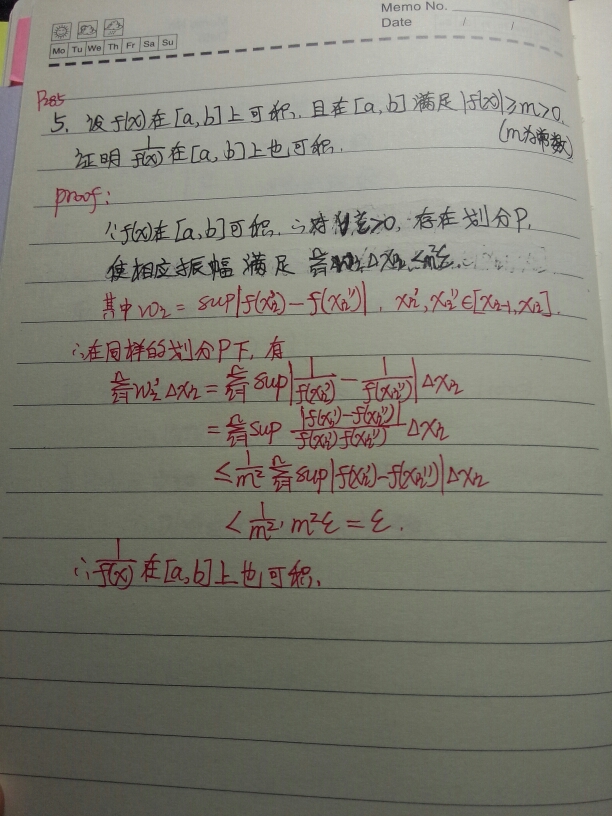 Memo No.
Date / /
Mo Tu We Th Fr Sa Su
P285
5. 设 f(x) 在 [a, b] 上可积, 且在 [a, b] 满足 |f(x)| ≥ m > 0.
(m为常数)
证明 1/f(x) 在 [a, b] 上也可积.
proof:
∵ f(x) 在 [a, b] 可积, ∴ 对 ∀ε>0, 存在划分 P,
使相应振幅满足 Σ wᵢ Δxᵢ < m²ε.
其中 wᵢ = sup|f(xᵢ') − f(xᵢ'')|, xᵢ', xᵢ'' ∈ [xᵢ₋₁, xᵢ].
∴ 在同样的划分 P 下, 有
Σ wᵢ' Δxᵢ = Σ sup|1/f(xᵢ') − 1/f(xᵢ'')| Δxᵢ
= Σ sup |f(xᵢ') − f(xᵢ'')| / f(xᵢ') f(xᵢ'') Δxᵢ
≤ 1/m² Σ sup|f(xᵢ') − f(xᵢ'')| Δxᵢ
< 1/m² · m²ε = ε.
∴ 1/f(x) 在 [a, b] 上也可积.